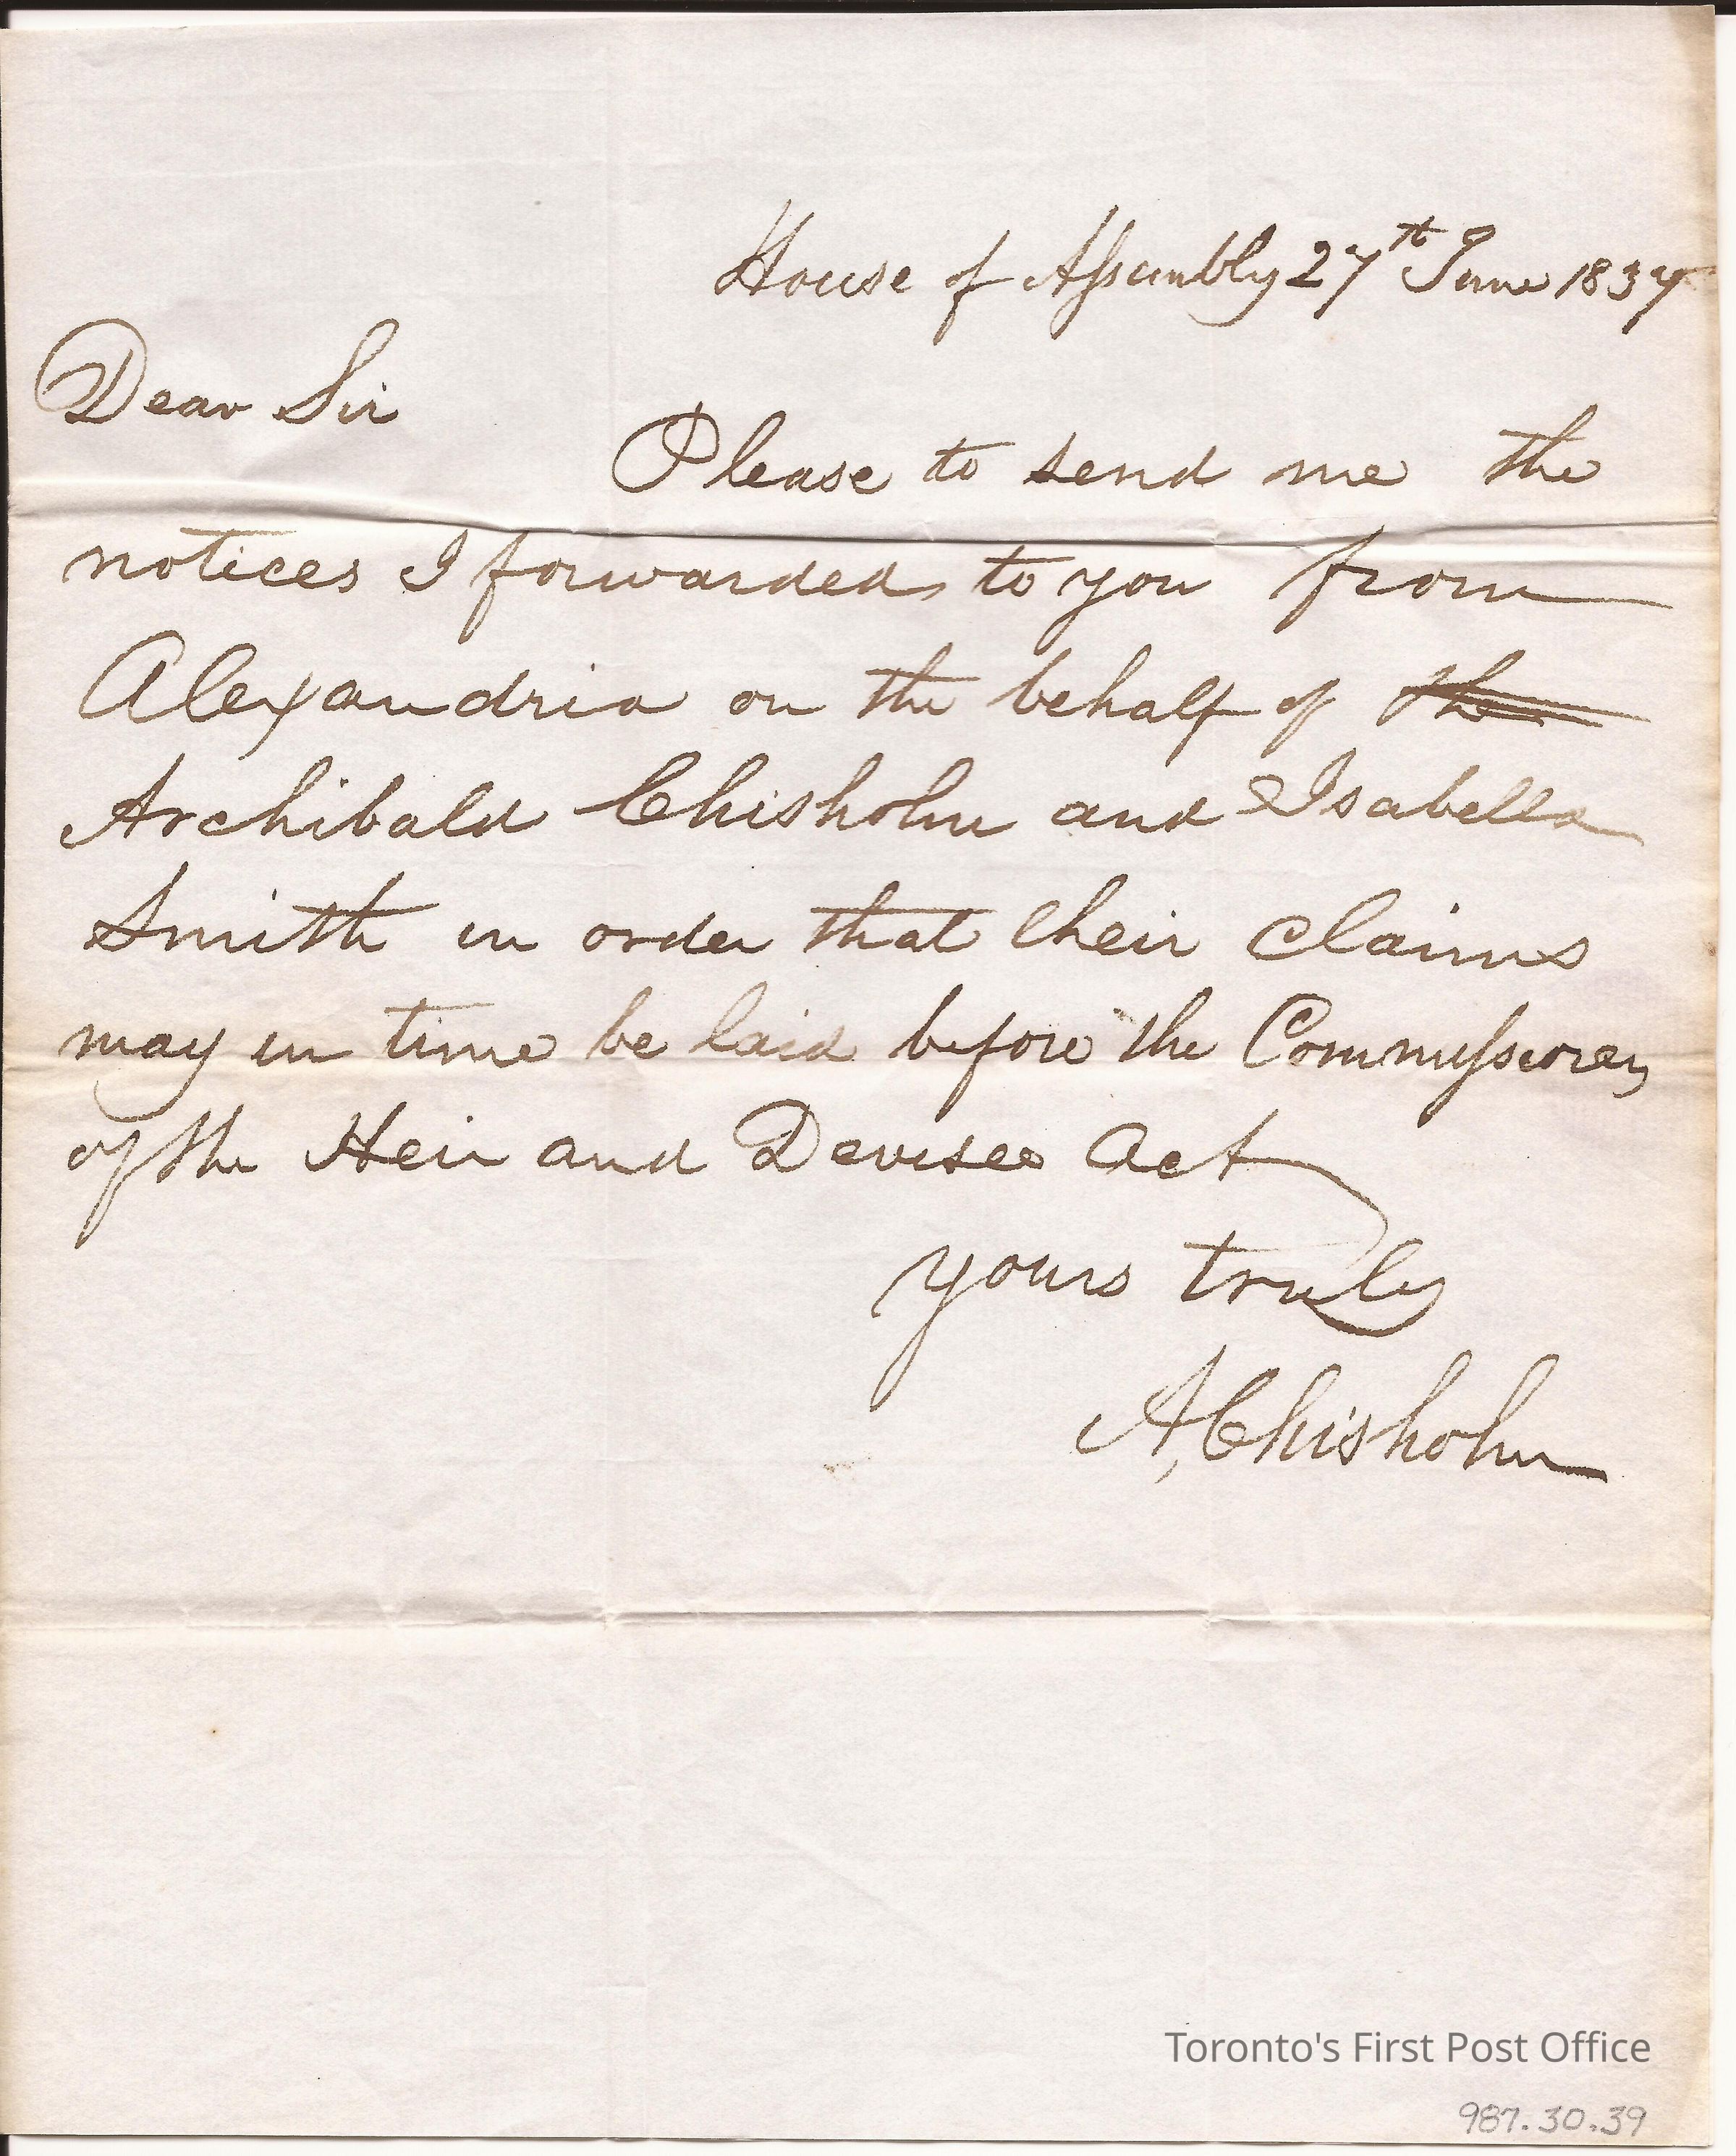 House of Assembly 27th June 1837
Dear Sir
Please to send me the
notices I forwarded to you from
Alexandria on the behalf of the
Archibald Chisholm and Isabella
Smith in order that their Claims
may in time be laid before the Commissioners
of the Heir and Devisee Act
yours truly
A, Chisholm
Toronto's First Post Office
987.30.39